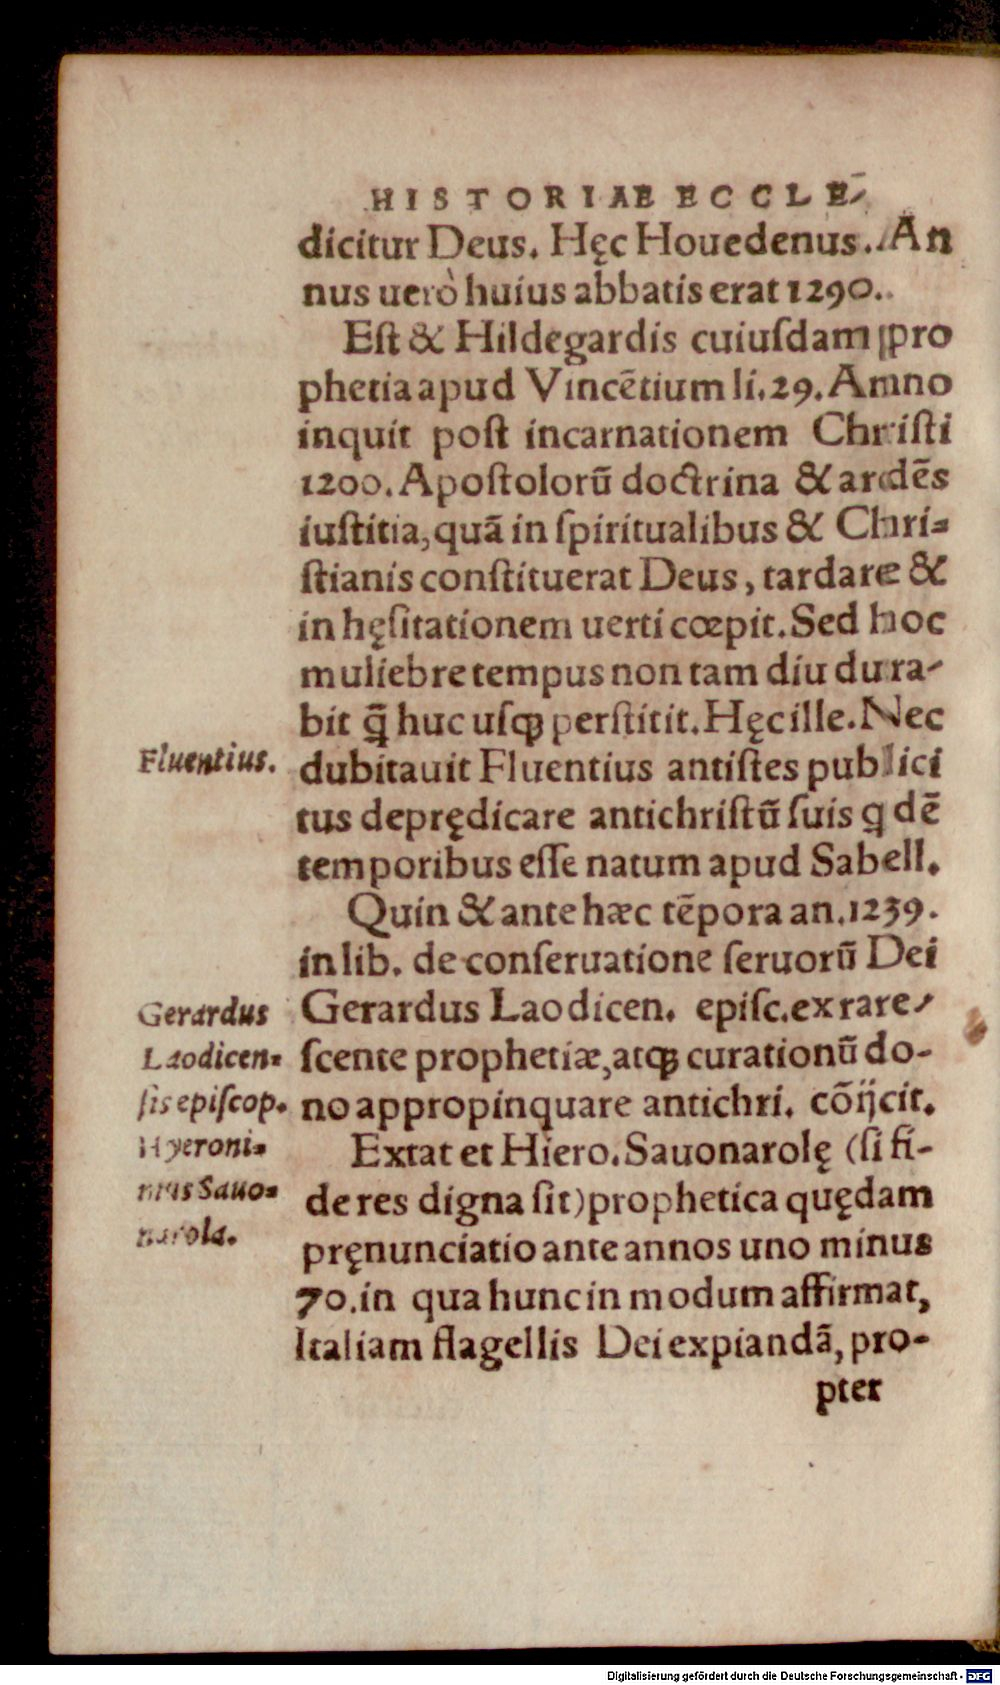 HISTORIAE ECCLE-
dicitur Deus. Hęc Houedenus. An
nus uerò huius abbatis erat 1290.
Eſt & Hildegardis cuiuſdam pro
phetia apud Vincẽtium li. 29. Anno
inquit poſt incarnationem Chriſti
1200. Apoſtolorũ doctrina & ardẽs
iuſtitia, quã in ſpiritualibus & Chri=
ſtianis conſtituerat Deus, tardare &
in hęſitationem uerti cœpit. Sed hoc
muliebre tempus non tam diu dura-
bit q̃ huc uſqꝫ perſtitit. Hęc ille. Nec
Fluentius.
dubitauit Fluentius antiſtes publici
tus deprędicare antichriſtũ ſuis q dẽ
temporibus eſſe natum apud Sabell.
Quin & ante hæc tẽpora an. 1239.
in lib. de conſeruatione ſeruorũ Dei
Gerardus
Laodicen=
ſis epiſcop.
Gerardus Laodicen. epiſc. ex rare-
ſcente prophetiæ, atqꝫ curationũ do-
no appropinquare antichri. cõijcit.
Hyeroni=
mus Sauo=
narola.
Extat et Hiero. Sauonarolę (ſi fi-
de res digna ſit) prophetica quędam
pręnunciatio ante annos uno minus
70. in qua hunc in modum affirmat,
Italiam flagellis Dei expiandã, pro-
pter
Digitalisierung gefördert durch die Deutsche Forschungsgemeinschaft - DFG